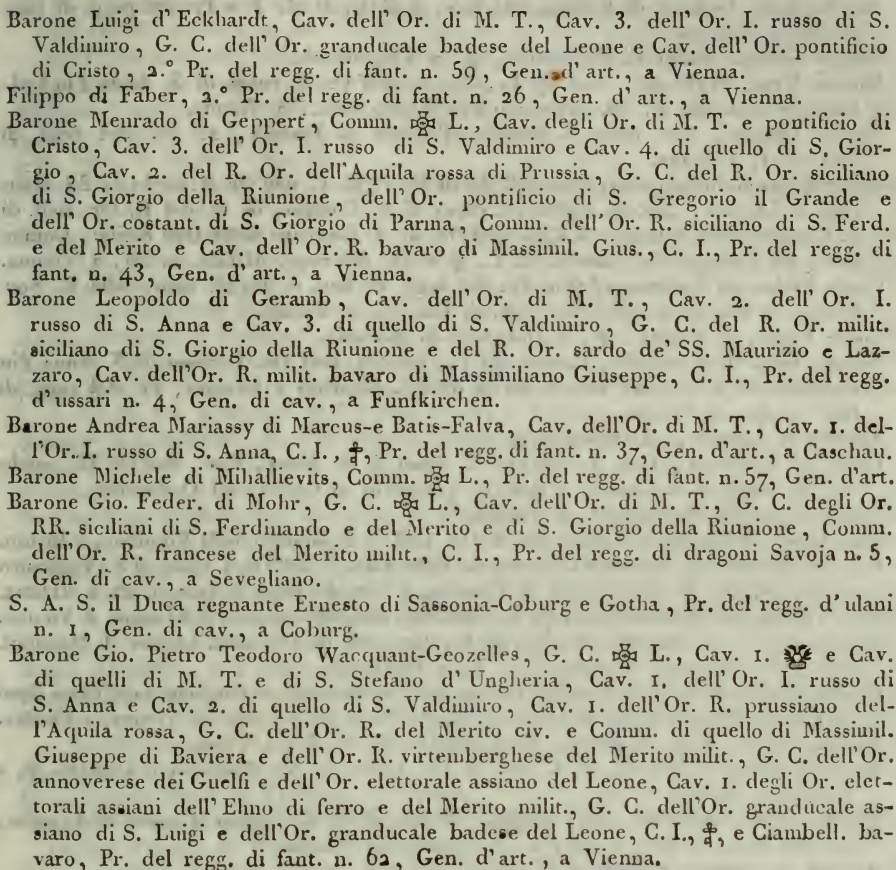 Barone Luigi d'Eckhardt, Cav. dell'Or. di M. T., Cav. 3. dell'Or. I. russo di S.
Valdimiro, G. C. dell'Or. granducale badese del Leone e Cav. dell'Or. pontificio
di Cristo, 2.° Pr. del regg. di fant. n. 59, Gen. d'art., a Vienna.
Filippo di Faber, 2.° Pr. del regg. di fant. n. 26, Gen. d'art., a Vienna.
Barone Menrado di Geppert, Comm. L., Cav. degli Or. di M. T. e pontificio di
Cristo, Cav. 3. dell'Or. I. russo di S. Valdimiro e Cav. 4. di quello di S. Gior-
gio, Cav. 2. del R. Or. dell'Aquila rossa di Prussia, G. C. del R. Or. siciliano
di S. Giorgio della Riunione, dell'Or. pontificio di S. Gregorio il Grande e
dell'Or. costant. di S. Giorgio di Parma, Comm. dell'Or. R. siciliano di S. Ferd.
e del Merito e Cav. dell'Or. R. bavaro di Massimil. Gius., C. I., Pr. del regg. di
fant. n. 43, Gen. d'art., a Vienna.
Barone Leopoldo di Geramb, Cav. dell'Or. di M. T., Cav. 2. dell'Or. I.
russo di S. Anna e Cav. 3. di quello di S. Valdimiro, G. C. del R. Or. milit.
siciliano di S. Giorgio della Riunione e del R. Or. sardo de' SS. Maurizio e Laz-
zaro, Cav. dell'Or. R. milit. bavaro di Massimiliano Giuseppe, C. I., Pr. del regg.
d'ussari n. 4, Gen. di cav., a Funfkirchen.
Barone Andrea Mariassy di Marcus-e Batis-Falva, Cav. dell'Or. di M. T., Cav. 1. del-
l'Or. I. russo di S. Anna, C. I., ‡, Pr. del regg. di fant. n. 37, Gen. d'art., a Caschau.
Barone Michele di Mihallievits, Comm. L., Pr. del regg. di fant. n. 57, Gen. d'art.
Barone Gio. Feder. di Mohr, G. C. L., Cav. dell'Or. di M. T., G. C. degli Or.
RR. siciliani di S. Ferdinando e del Merito e di S. Giorgio della Riunione, Comm.
dell'Or. R. francese del Merito milit., C. I., Pr. del regg. di dragoni Savoja n. 5,
Gen. di cav., a Sevegliano.
S. A. S. il Duca regnante Ernesto di Sassonia-Coburg e Gotha, Pr. del regg. d'ulani
n. 1, Gen. di cav., a Coburg.
Barone Gio. Pietro Teodoro Wacquant-Geozelles, G. C. L., Cav. 1. e Cav.
di quelli di M. T. e di S. Stefano d'Ungheria, Cav. 1. dell'Or. I. russo di
S. Anna e Cav. 2. di quello di S. Valdimiro, Cav. 1. dell'Or. R. prussiano del-
l'Aquila rossa, G. C. dell'Or. R. del Merito civ. e Comm. di quello di Massimil.
Giuseppe di Baviera e dell'Or. R. virtemberghese del Merito milit., G. C. dell'Or.
annoverese dei Guelfi e dell'Or. elettorale assiano del Leone, Cav. 1. degli Or. elet-
torali assiani dell'Elmo di ferro e del Merito milit., G. C. dell'Or. granducale as-
siano di S. Luigi e dell'Or. granducale badese del Leone, C. I., ‡, e Ciambell. ba-
varo, Pr. del regg. di fant. n. 62, Gen. d'art., a Vienna.